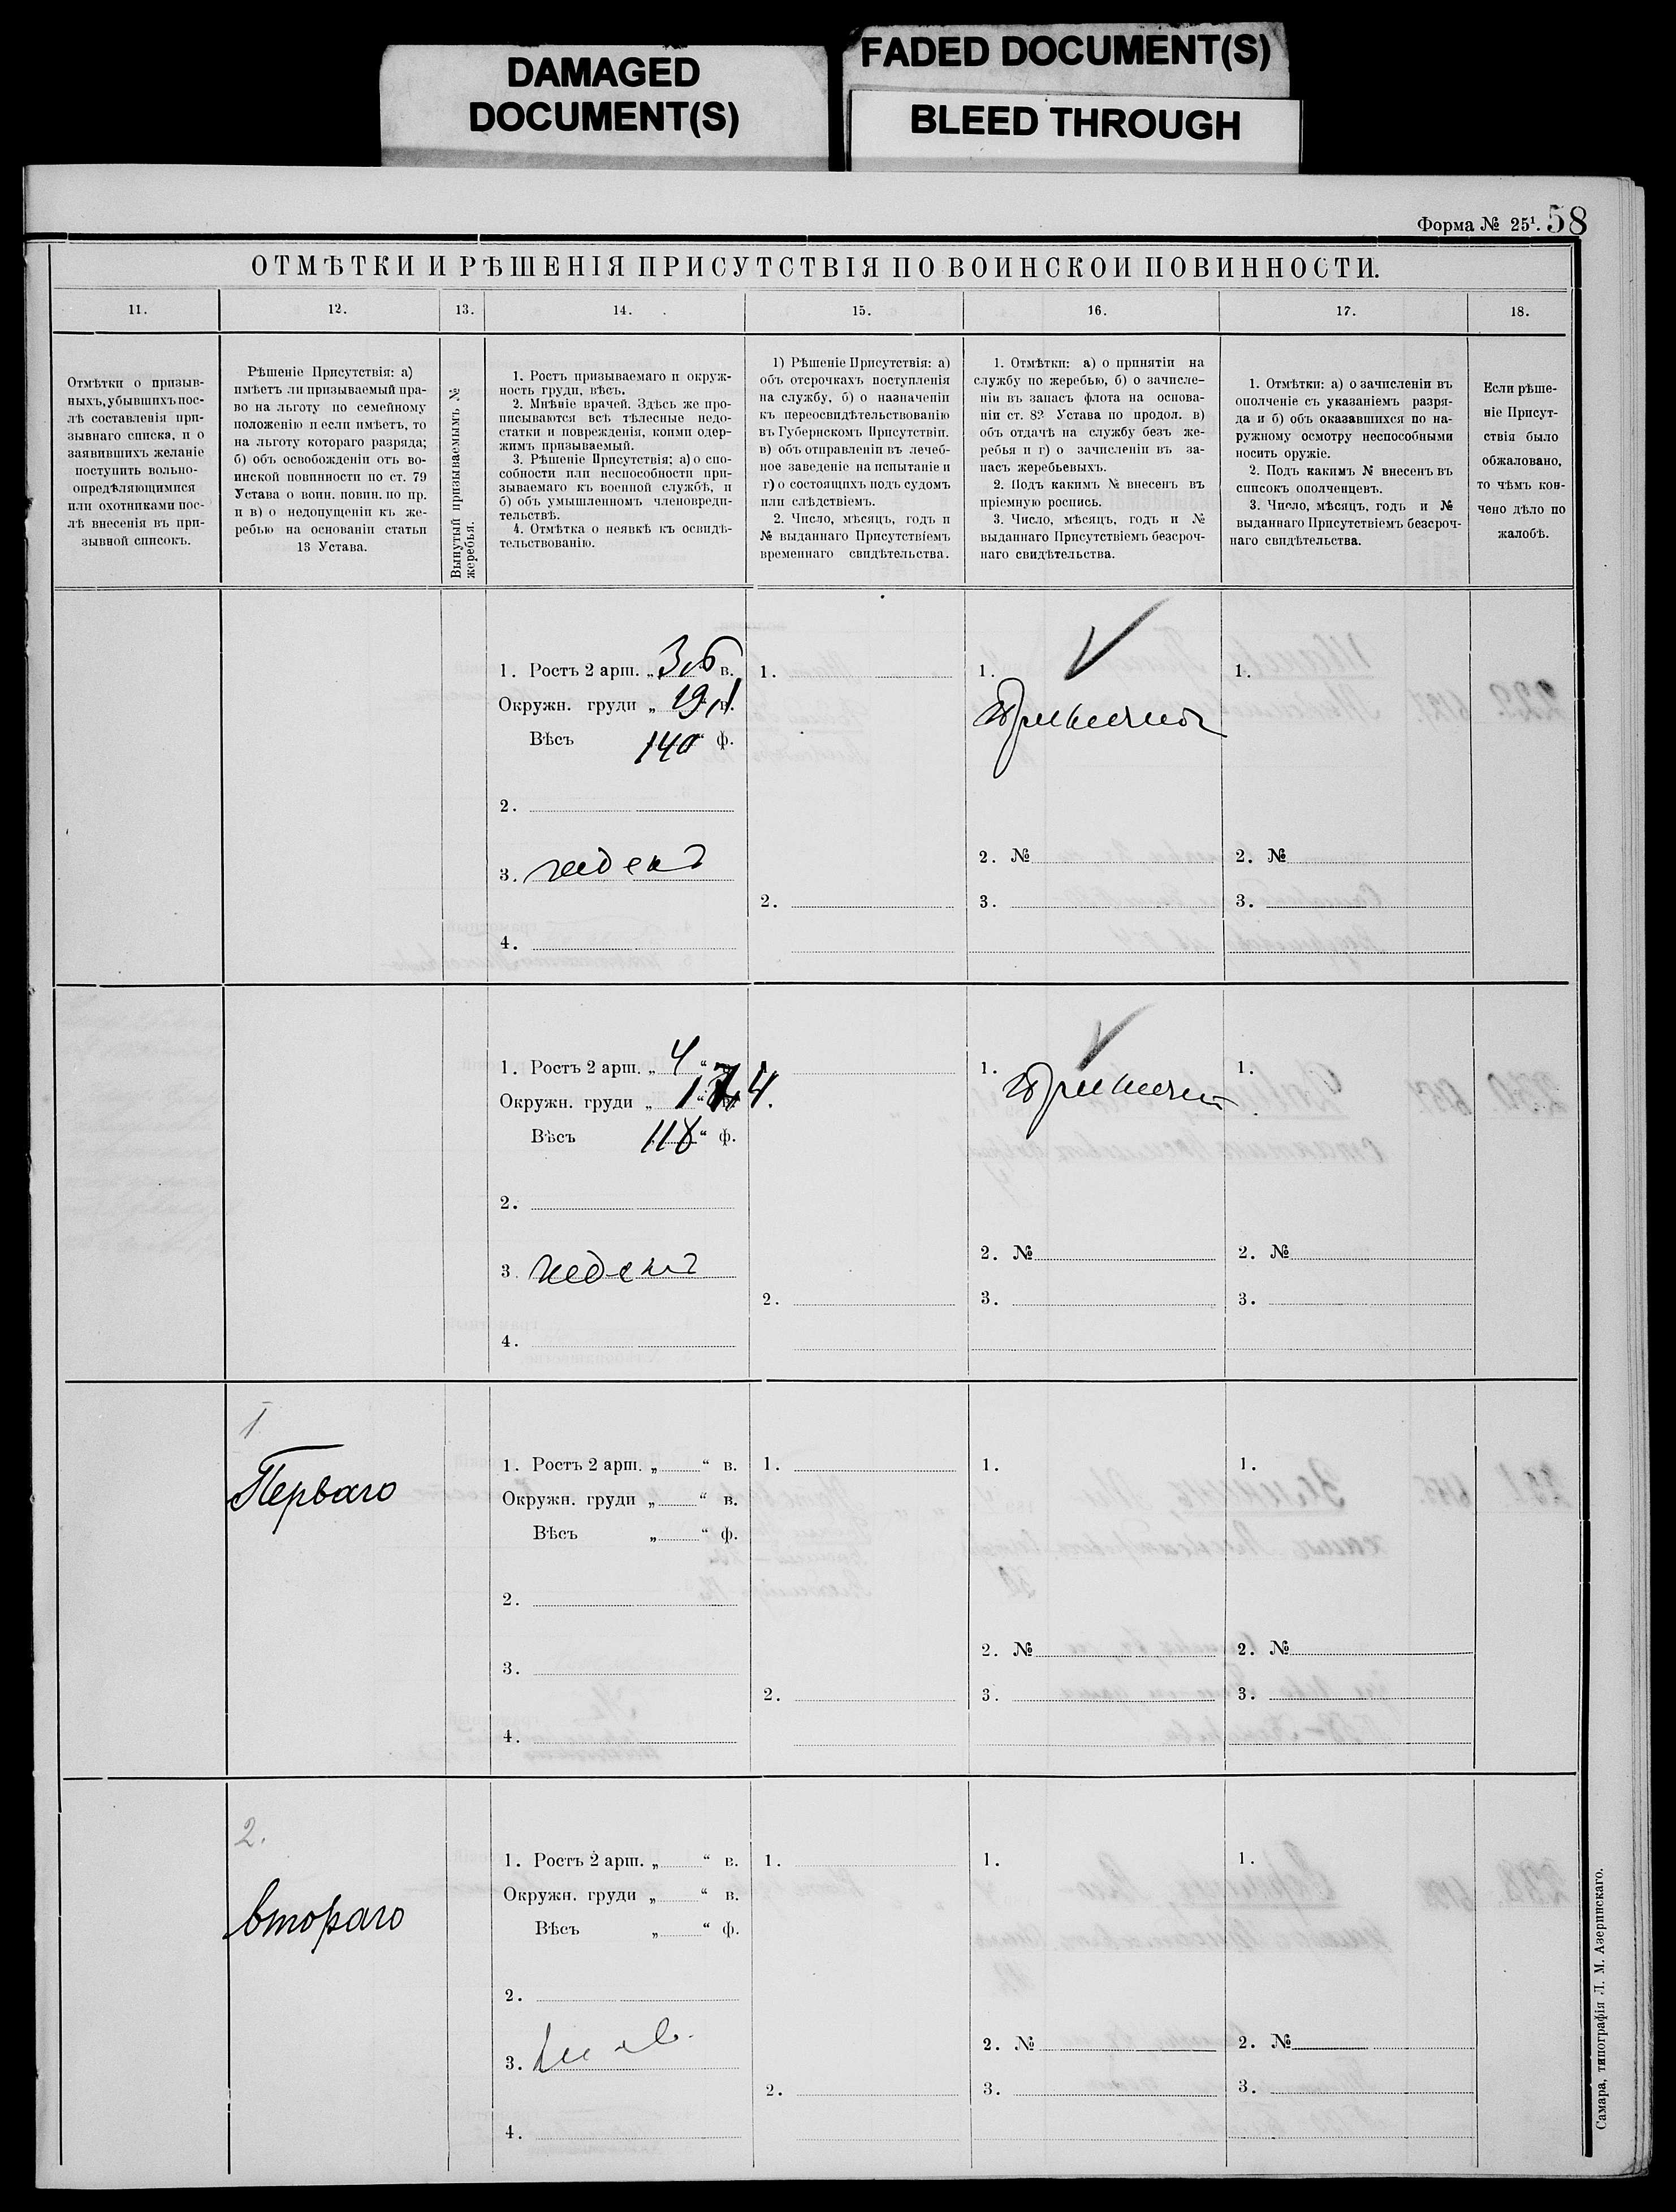 DAMAGED
DOCUMENT(S)
FADED DOCUMENT(S)
BLEED THROUGH
Форма № 25¹. 58
ОТМѢТКИ И РѢШЕНІЯ ПРИСУТСТВІЯ ПО ВОИНСКОЙ ПОВИННОСТИ.
11.
12.
13.
14.
15.
16.
17.
18.
Отмѣтки о призыв-
ныхъ, убывшихъ пос-
лѣ составленія при-
зывнаго списка, и о
заявившихъ желаніе
поступить вольно-
опредѣляющимися
или охотниками пос-
лѣ внесенія въ при-
зывной списокъ.
Рѣшеніе Присутствія: а)
имѣетъ ли призываемый пра-
во на льготу по семейному
положенію и если имѣетъ, то
на льготу котораго разряда;
б) объ освобожденіи отъ во-
инской повинности по ст. 79
Устава о воин. повин. по пр.
и в) о недопущеніи къ же-
ребью на основаніи статьи
13 Устава.
Вынутый призываемымъ №
жеребья.
1. Ростъ призываемаго и окруж-
ность груди, вѣсъ.
2. Мнѣніе врачей. Здѣсь же про-
писываются всѣ тѣлесные недо-
статки и поврежденія, коими одер-
жимъ призываемый.
3. Рѣшеніе Присутствія; а) о спо-
собности или неспособности при-
зываемаго къ военной службѣ, и
б) объ умышленномъ членовреди-
тельствѣ.
4. Отмѣтка о неявкѣ къ освидѣ-
тельствованію.
1) Рѣшеніе Присутствія: а)
объ отсрочкахъ поступленія
на службу, б) о назначеніи
къ переосвидѣтельствованію
въ Губернскомъ Присутствіи.
в) объ отправленіи въ лечеб-
ное заведеніе на испытаніе и
г) о состоящихъ подъ судомъ
или слѣдствіемъ.
2. Число, мѣсяцъ, годъ и
№ выданнаго Присутствіемъ
временнаго свидѣтельства.
1. Отмѣтки: а) о принятіи на
службу по жеребью, б) о зачисле-
ніи въ запасъ флота на основа-
ніи ст. 82 Устава по продол. в)
объ отдачѣ на службу безъ же-
ребья и г) о зачисленіи въ за-
пасъ жеребьевыхъ.
2. Подъ какимъ № внесенъ въ
пріемную роспись.
3. Число, мѣсяцъ, годъ и №
выданнаго Присутствіемъ безсроч-
наго свидѣтельства.
1. Отмѣтки: а) о зачисленіи въ
ополченіе съ указаніемъ разря-
да и б) объ оказавшихся по на-
ружному осмотру неспособными
носить оружіе.
2. Подъ какимъ № внесенъ въ
списокъ ополченцевъ.
3. Число, мѣсяцъ, годъ и №
выданнаго Присутствіемъ безсроч-
наго свидѣтельства.
Если рѣше-
ніе Присут-
ствія было
обжаловано,
то чѣмъ кон-
чено дѣло по
жалобѣ.
1. Ростъ 2 арш. „ в.
Окружн. груди „ в.
Вѣсъ 140 ф.
2.
3.
4.
1.
2.
1.
2. №
3.
1.
2. №
3.
1. Ростъ 2 арш. „ 4 “
Окружн. груди „
Вѣсъ “ ф.
2.
3
4.
2.
1.
2. №
3.
1.
2. №
3.
1
Перваго
1. Ростъ 2 арш. „ “ в.
Окружн. груди „ “ в.
Вѣсъ „ “ ф.
2.
3.
4.
1.
2.
1.
2. №
3.
1.
2. №
3.
2.
Втораго
1. Ростъ 2 арш. „ “ в.
Окружн. груди „ “ в.
Вѣсъ „ “ ф.
2.
3.
4.
1.
2.
1.
2. №
3.
1.
2. №
3.
Самара, типографія Л. М. Азеринскаго.